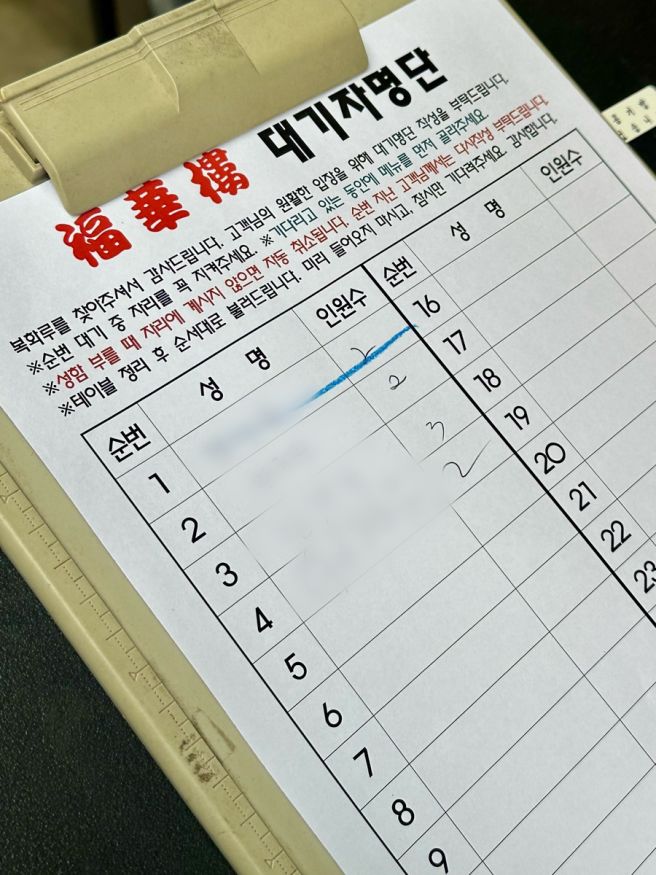 福華樓 대기자명단
복화루를 찾아주셔서 감사드립니다. 고객님의 원활한 입장을 위해 대기명단 작성을 부탁드립니다.
※순번 대기 중 자리를 꼭 지켜주세요. ※기다리고 있는 동안에 메뉴를 먼저 골라주세요.
※성함 부를 때 자리에 계시지 않으면 자동 취소됩니다. 순번 지난 고객님께서는 다시작성 부탁드립니다.
※테이블 정리 후 순서대로 불러드립니다. 미리 들어오지 마시고, 잠시만 기다려주세요. 감사합니다.
순번 성 명 인원수 순번 성 명 인원수
1 2 16
2 2 17
3 3 18
4 2 19
5 20
6 21
7 22
8 23
9